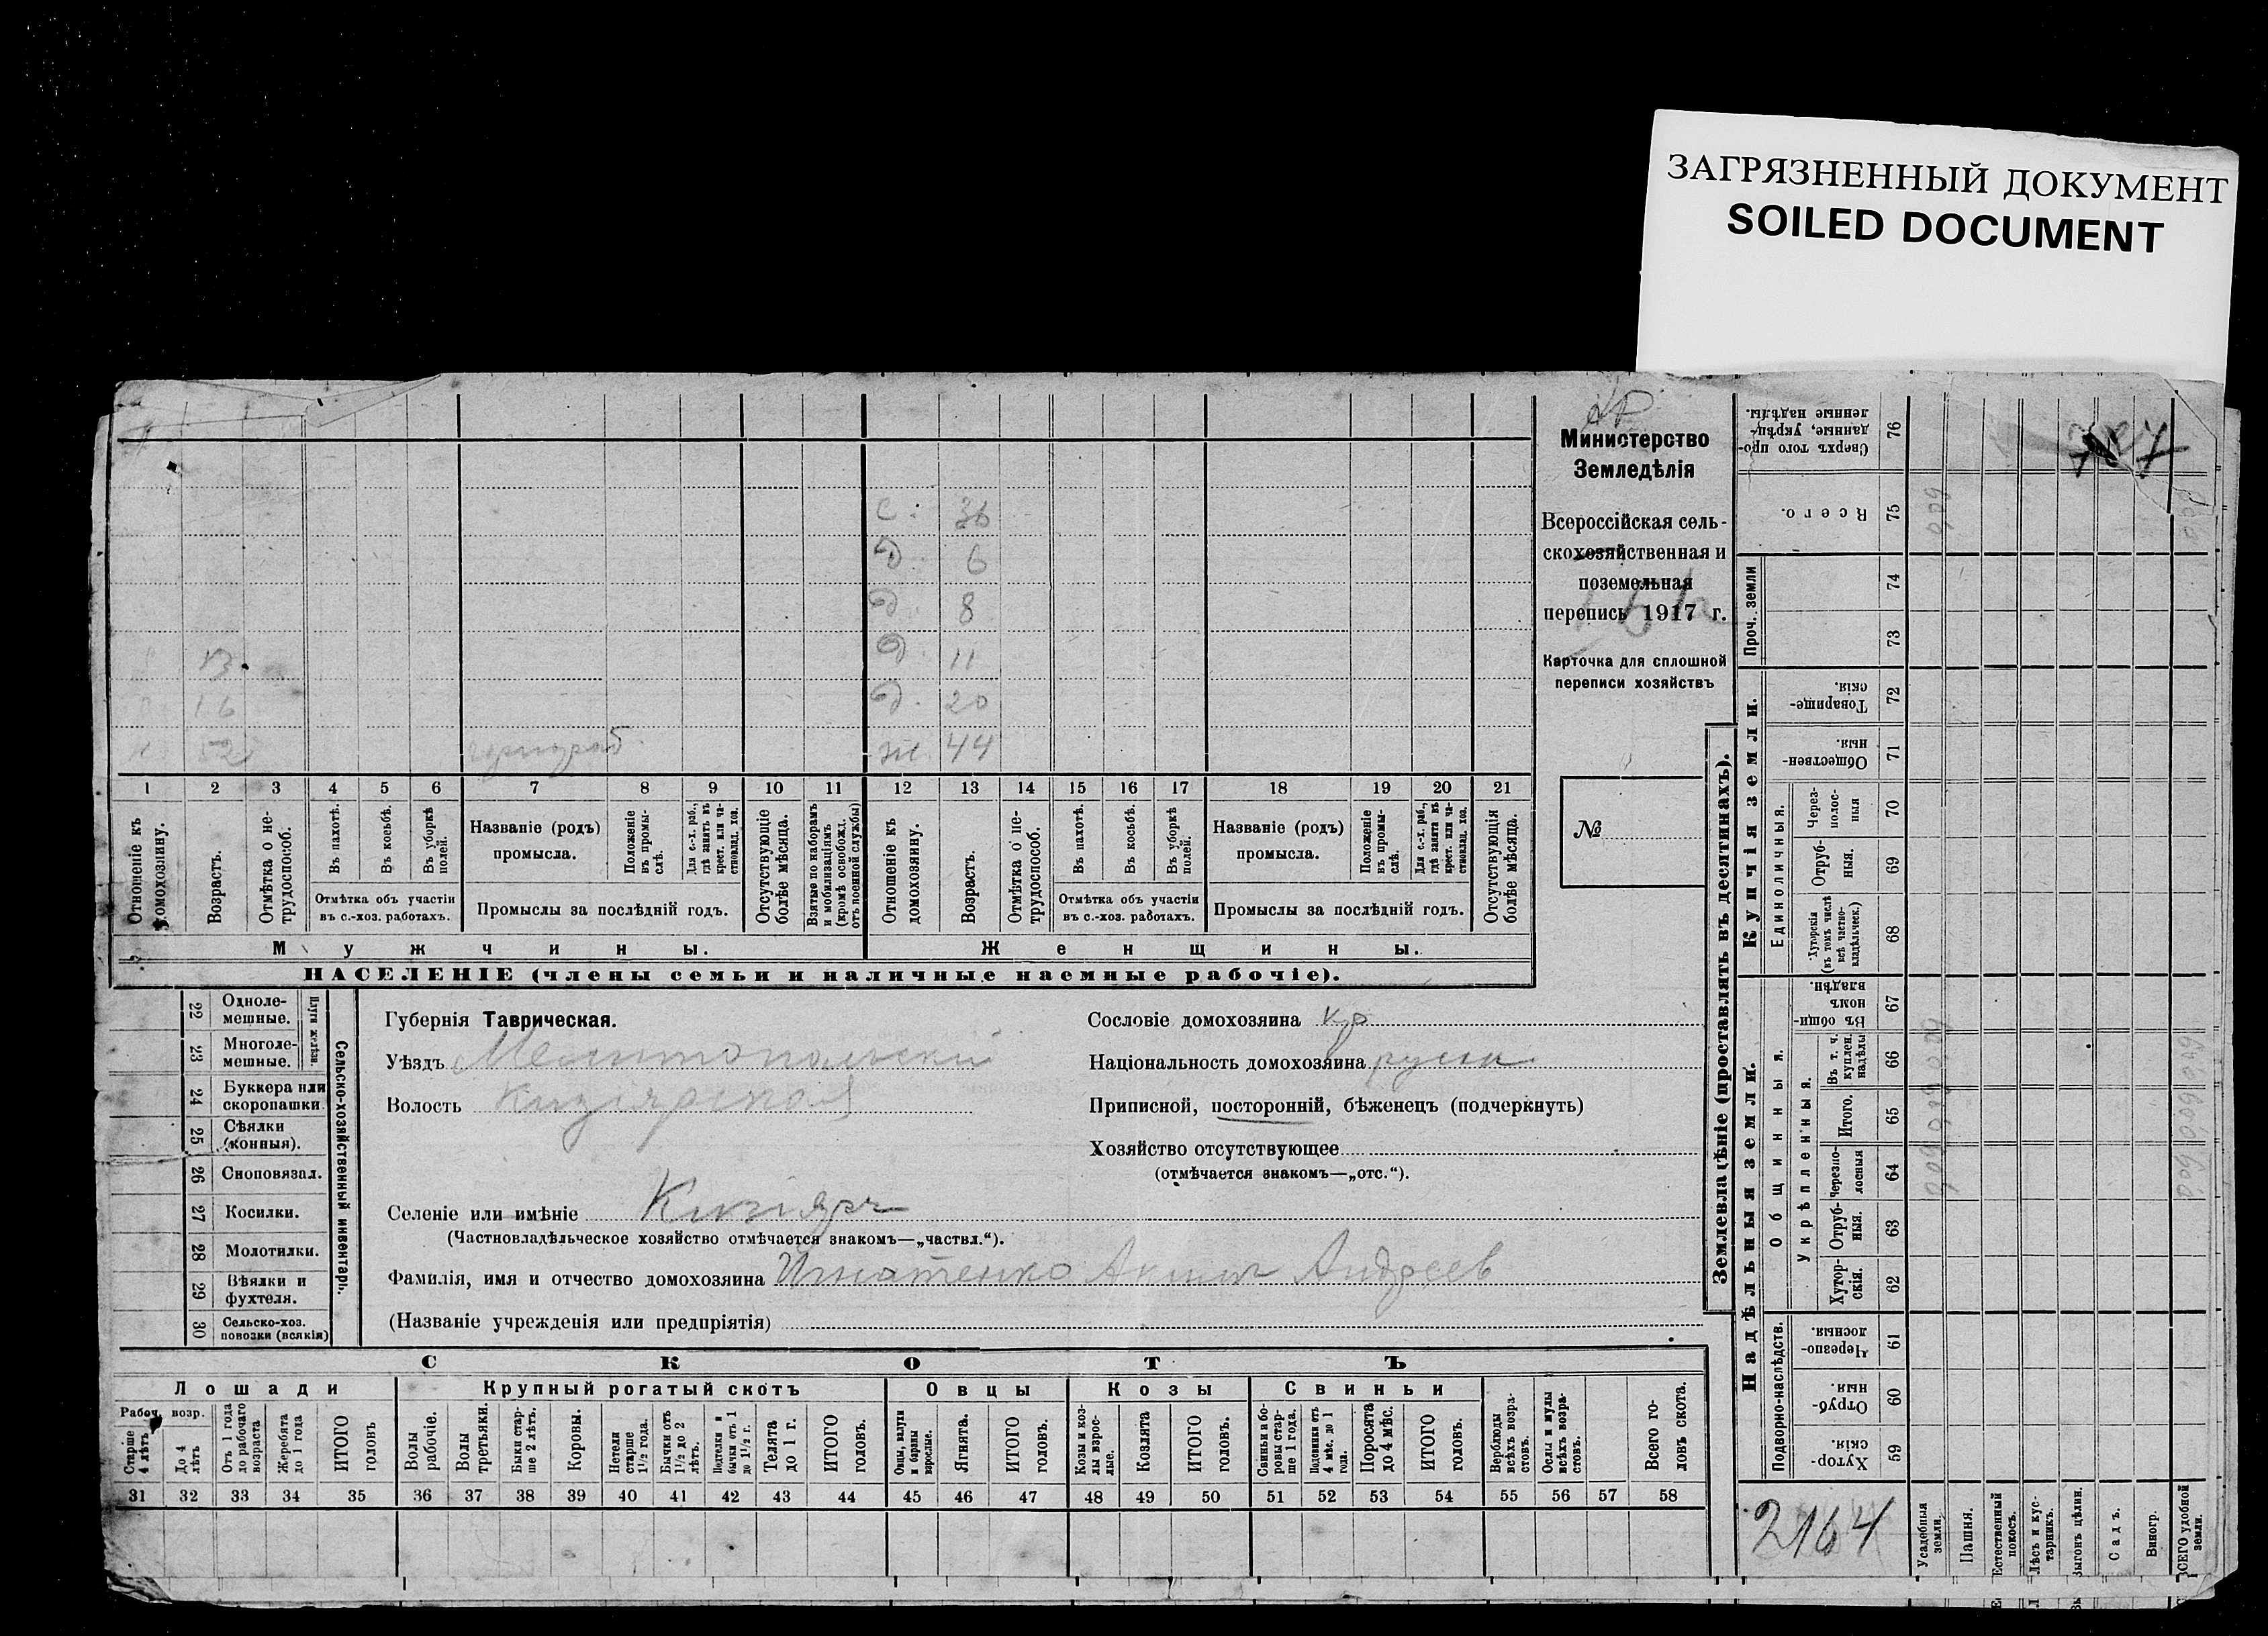 ЗАГРЯЗНЕННЫЙ ДОКУМЕНТ
SOILED DOCUMENT
Министерство
Земледѣлія
Всероссійская сель-
скохозяйственная и
поземельная
перепись 1917 г.
Карточка для сплошной
переписи хозяйствъ
№
С. 36
д. 6
д. 8
13. д. 11
16 д. 20
52 чернораб ж. 44
1 2 3 4 5 6 7 8 9 10 11 12 13 14 15 16 17 18 19 20 21
Отношеніе къ домохозяину.
Возрастъ.
Отмѣтка о не-трудоспособ.
Въ пахотѣ.
Въ косьбѣ.
Въ уборкѣ полей.
Отмѣтка объ участіи
въ с.-хоз. работахъ.
Названіе (родъ)
промысла.
Положеніе въ промы-слѣ.
Для с.-х. раб., гдѣ занятъ въ крест. или ча-стновлад. хоз.
Промыслы за послѣдній годъ.
Отсутствующіе болѣе мѣсяца.
Взятые по наборамъ и мобилизаціямъ (кромѣ освобожд. отъ военной службы)
Отношеніе къ домохозяину.
Возрастъ.
Отмѣтка о не-трудоспособ.
Въ пахотѣ.
Въ косьбѣ.
Въ уборкѣ полей.
Отмѣтка объ участіи
въ с.-хоз. работахъ.
Названіе (родъ)
промысла.
Положеніе въ промы-слѣ.
Для с.-х. раб., гдѣ занята въ крест. или ча-стновлад. хоз.
Промыслы за послѣдній годъ.
Отсутствующія болѣе мѣсяца.
Мужчины. Женщины.
НАСЕЛЕНІЕ (члены семьи и наличные наемные рабочіе).
Сельско-хозяйственный инвентарь.
Плуги желѣзн.
22 Одноле-мешные.
23 Многоле-мешные.
24 Буккера или скоропашки
25 Сѣялки (конныя).
26 Сноповязал.
27 Косилки.
28 Молотилки.
29 Вѣялки и фухтеля.
30 Сельско-хоз. повозки (всякія)
Губернія Таврическая.
Уѣздъ Мелитопольскій
Волость Кизіярская
Селеніе или имѣніе Кизіяръ
(Частновладѣльческое хозяйство отмѣчается знакомъ—„частвл.“).
Фамилія, имя и отчество домохозяина Игнатенко Андреев
(Названіе учрежденія или предпріятія)
Сословіе домохозяина кр
Національность домохозяина русск
Приписной, посторонній, бѣженецъ (подчеркнуть)
Хозяйство отсутствующее
(отмѣчается знакомъ—„отс.“).
СКОТЪ
Лошади Крупный рогатый скотъ Овцы Козы Свиньи
Рабоч. возр.
Старше 4 лѣтъ
До 4 лѣтъ
Отъ 1 года до рабочаго возраста
Жеребята до 1 года
ИТОГО головъ
Волы рабочіе.
Волы третьяки.
Быки стар-ше 2 лѣтъ.
Коровы.
Нетели старше 1 1/2 года.
Бычки отъ 1 1/2 до 2 лѣтъ.
Подтелки и бычки отъ 1 до 1 1/2 г.
Телята до 1 г.
ИТОГО головъ.
Овцы, валухи и бараны взрослые.
Ягнята.
ИТОГО головъ.
Козы и коз-лы взрос-лые.
Козлята
ИТОГО головъ.
Свиньи и бо-ровы стар-ше 1 года.
Подсвинки отъ 4 мѣс. до 1 года.
Поросята до 4 мѣс.
ИТОГО головъ.
Верблюды всѣхъ возра-стовъ.
Ослы и мулы всѣхъ возра-стовъ.
Всего го-ловъ скота.
31 32 33 34 35 36 37 38 39 40 41 42 43 44 45 46 47 48 49 50 51 52 53 54 55 56 57 58
Землевладѣніе (проставлять въ десятинахъ).
Надѣльныя земли.
Купчія земли.
Проч. земли
Подворно-наслѣдств.
Общинныя.
Укрѣпленныя.
Единоличныя.
Хутор-скія. 59
Отруб-ныя. 60
Черезпо-лосныя. 61
Хутор-скія. 62
Отруб-ныя. 63
Черезпо-лосныя 64
Итого. 65
Въ т. ч. куплен. надѣлы 66
Въ общин-номъ владѣн. 67
Хуторскія (въ томъ числѣ всѣ частно-владѣльческ.) 68
Отруб-ныя. 69
Через-полос-ныя 70
Обществен-ныя. 71
Товарище-скія. 72
73
74
Всего. 75
Сверхъ того про-данные, укрѣп-ленные надѣлы. 76
2164
Усадебныя земли.
Пашня.
Естественный покосъ.
Лѣсъ и кус-тарникъ.
Выгонъ цѣлин.
Садъ.
Виногр.
ВСЕГО удобной земли.